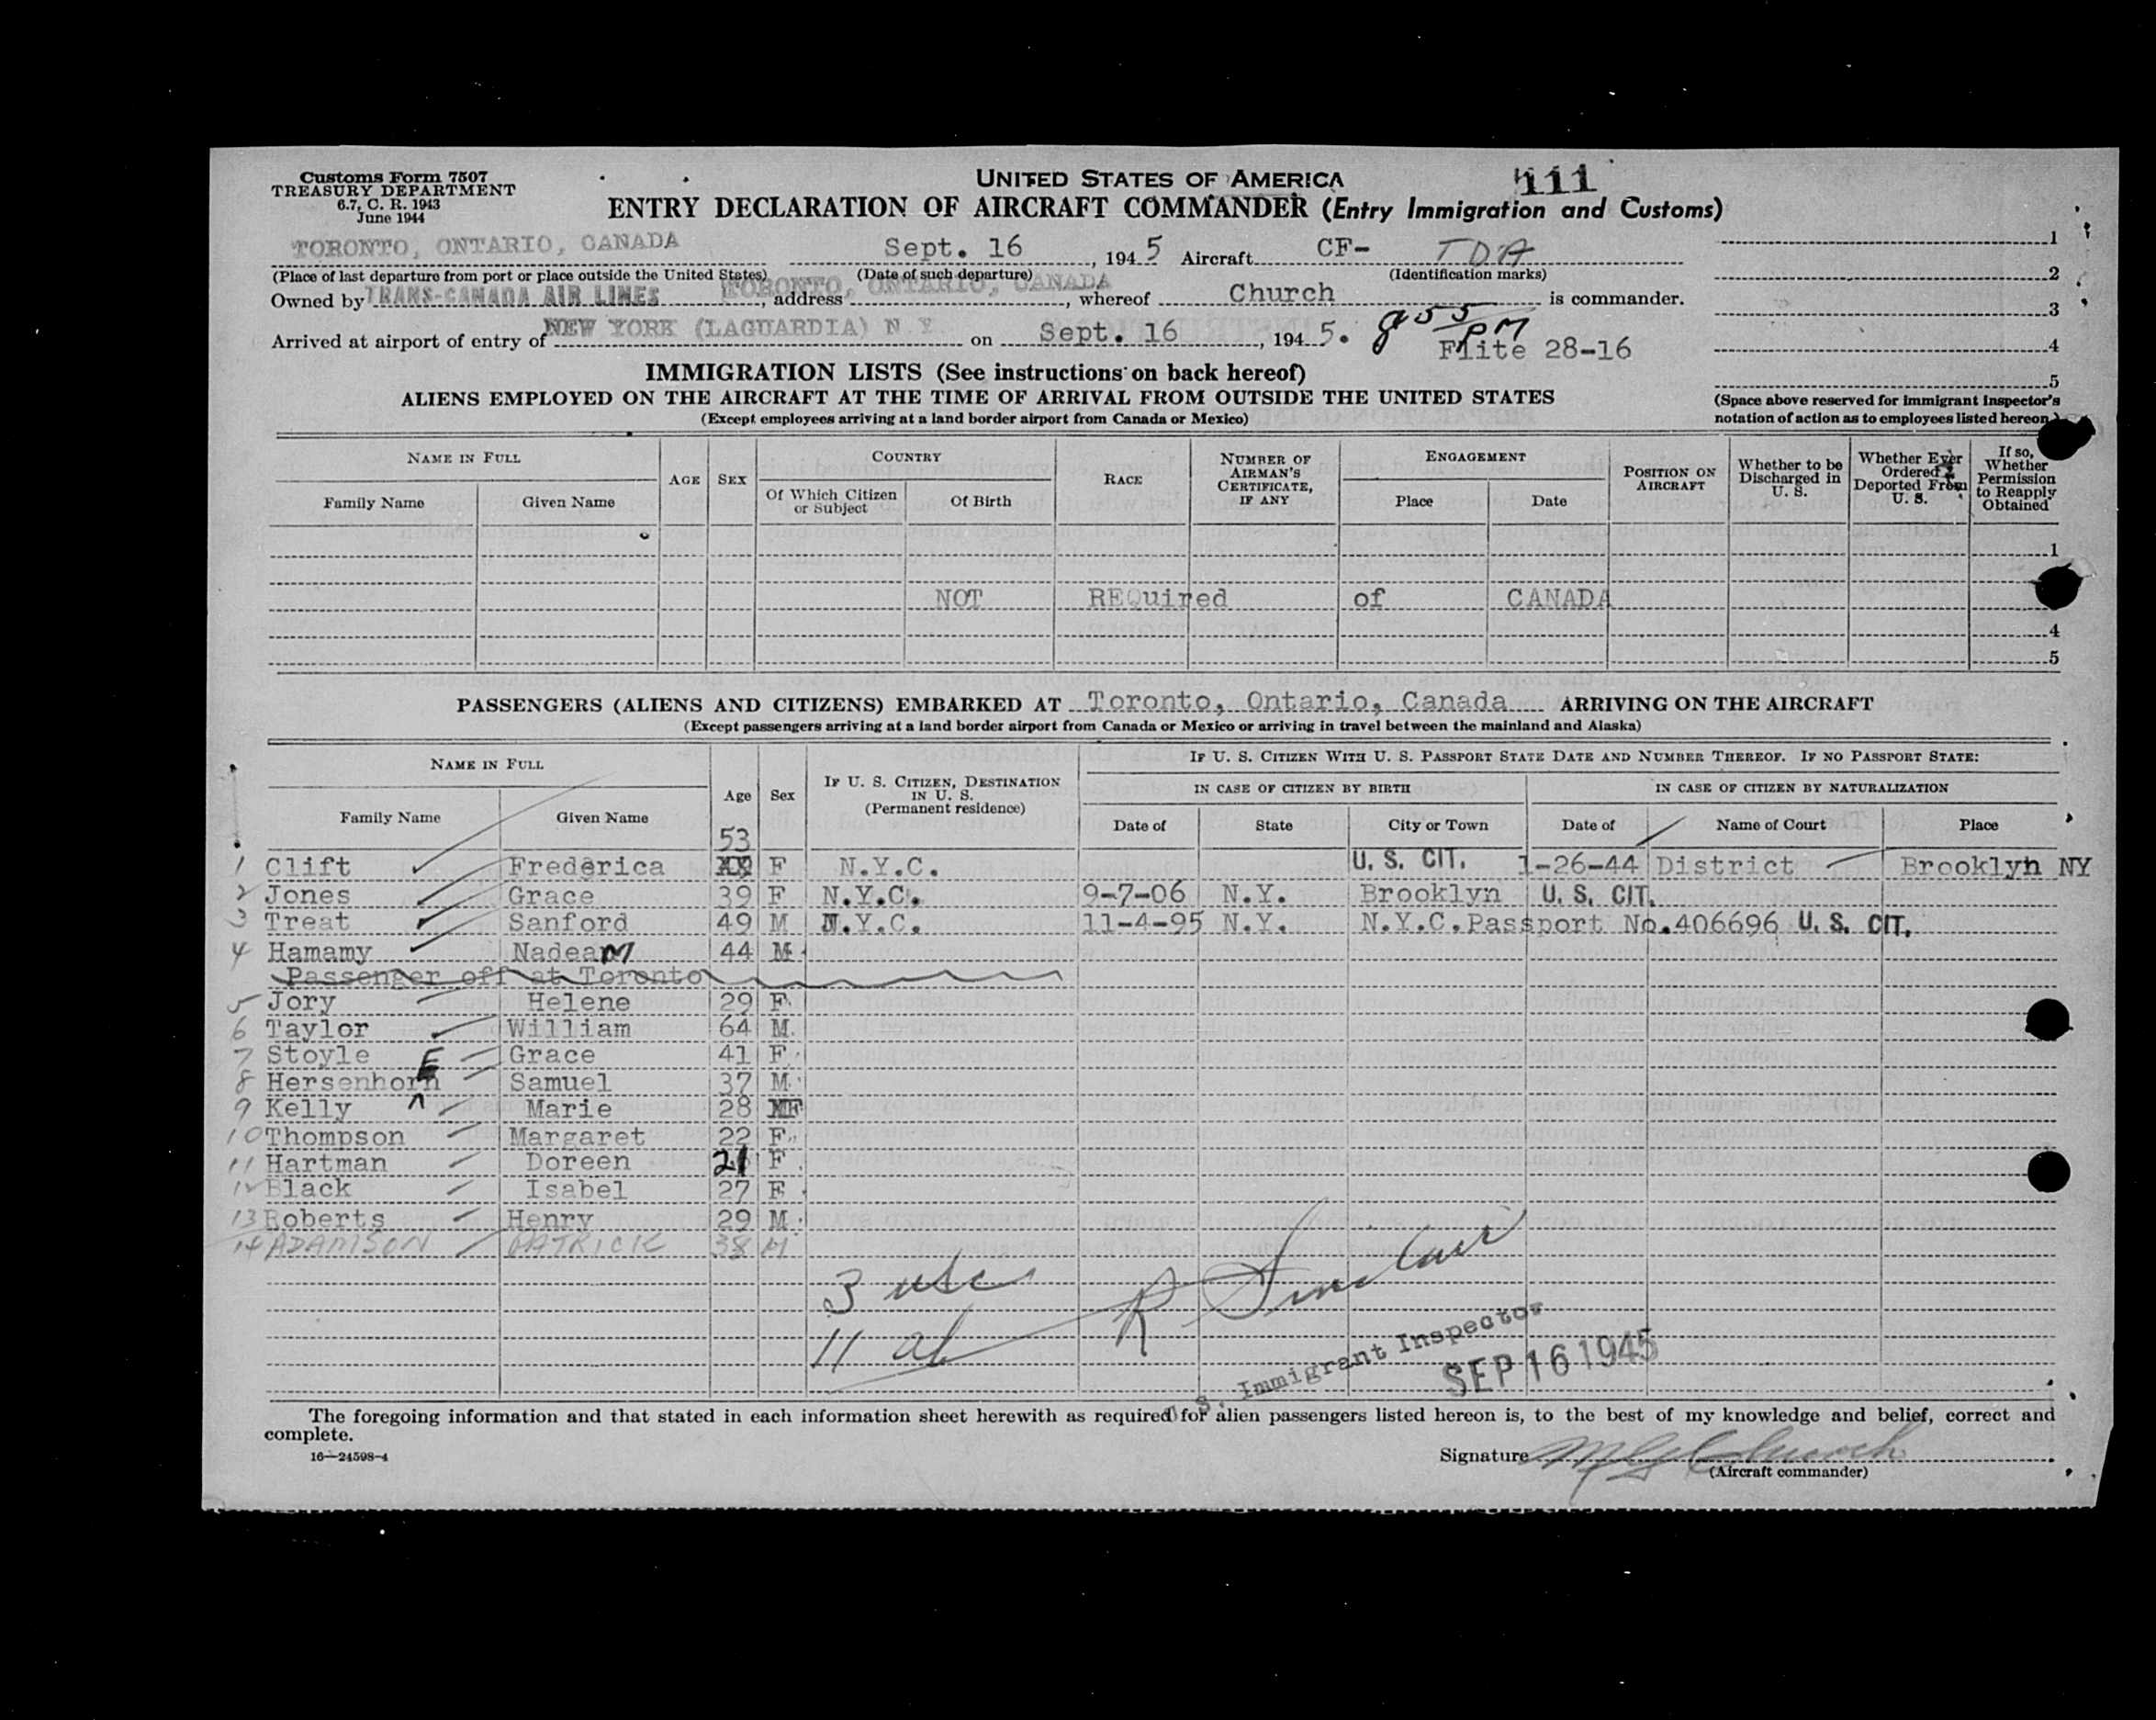 Customs Form 7507
TREASURY DEPARTMENT
6.7, C. R. 1943
June 1944
UNITED STATES OF AMERICA
111
ENTRY DECLARATION OF AIRCRAFT COMMANDER (Entry Immigration and Customs)
TORONTO, ONTARIO, CANADA Sept. 16, 1945 Aircraft CF- TDA
(Place of last departure from port or place outside the United States) (Date of such departure) (Identification marks)
Owned by TRANS-CANADA AIR LINES, address TORONTO, ONTARIO, CANADA, whereof Church is commander.
Arrived at airport of entry of NEW YORK (LAGUARDIA) N Y on Sept. 16, 1945. 855 PM
Flite 28-16
1
2
3
4
5
(Space above reserved for Immigrant Inspector's notation of action as to employees listed hereon.)
IMMIGRATION LISTS (See instructions on back hereof)
ALIENS EMPLOYED ON THE AIRCRAFT AT THE TIME OF ARRIVAL FROM OUTSIDE THE UNITED STATES
(Except employees arriving at a land border airport from Canada or Mexico)
NAME IN FULL
Family Name Given Name
AGE SEX
COUNTRY
Of Which Citizen or Subject Of Birth
RACE
NUMBER OF AIRMAN'S CERTIFICATE, IF ANY
ENGAGEMENT
Place Date
POSITION ON AIRCRAFT
Whether to be Discharged in U. S.
Whether Ever Ordered Deported From U. S.
If so, Whether Permission to Reapply Obtained
1
NOT REQuired of CANADA
4
5
PASSENGERS (ALIENS AND CITIZENS) EMBARKED AT Toronto, Ontario, Canada ARRIVING ON THE AIRCRAFT
(Except passengers arriving at a land border airport from Canada or Mexico or arriving in travel between the mainland and Alaska)
NAME IN FULL
Family Name Given Name
Age Sex
IF U. S. CITIZEN, DESTINATION IN U. S. (Permanent residence)
IF U. S. CITIZEN WITH U. S. PASSPORT STATE DATE AND NUMBER THEREOF. IF NO PASSPORT STATE:
IN CASE OF CITIZEN BY BIRTH IN CASE OF CITIZEN BY NATURALIZATION
Date of State City or Town Date of Name of Court Place
53
1 Clift Frederica XX F N.Y.C. U. S. CIT. 1-26-44 District Brooklyn NY
2 Jones Grace 39 F N.Y.C. 9-7-06 N.Y. Brooklyn U. S. CIT.
3 Treat Sanford 49 M N.Y.C. 11-4-95 N.Y. N.Y.C. Passport No.406696 U. S. CIT.
4 Hamamy NadeaM 44 M
Passenger off at Toronto
5 Jory Helene 29 F
6 Taylor William 64 M
7 Stoyle Grace 41 F
E
8 Hersenhorn Samuel 37 M
9 Kelly Marie 28 MF
10 Thompson Margaret 22 F
11 Hartman Doreen 21 F
12 Black Isabel 27 F
13 Roberts Henry 29 M
14 ADAMSON PATRICK 38 M
3 usc
R Sinclair
11 al
S. Immigrant Inspector
SEP 16 1945
The foregoing information and that stated in each information sheet herewith as required for alien passengers listed hereon is, to the best of my knowledge and belief, correct and
complete.
16—24598-4
Signature
(Aircraft commander)